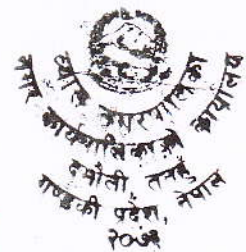 व्यास नगरपालिका
नगर कार्यपालिकाको कार्यालय
दमौली, तनहुँ
गण्डकी प्रदेश, नेपाल
२०७४